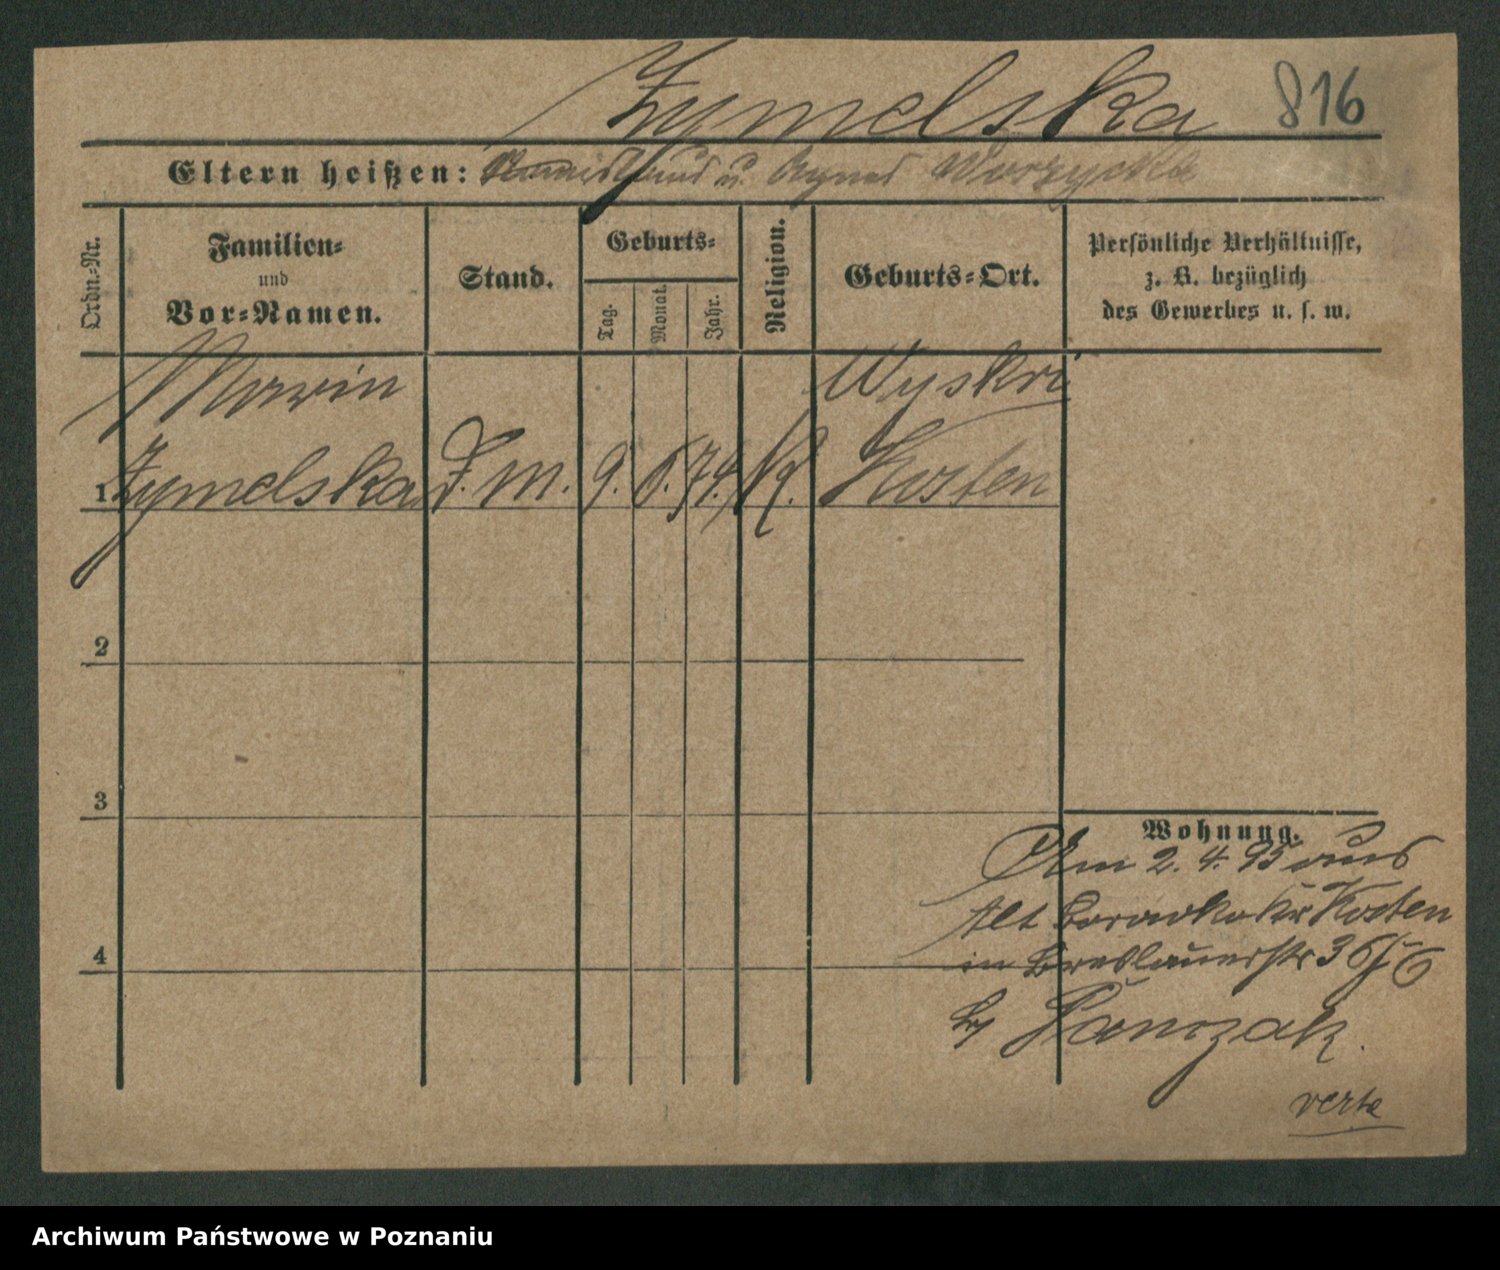 Zymelska 816
Eltern heißen: Stanislaus u. Agnes Worzycka
Ordn.-Nr.
Familien-
und
Vor-Namen.
Stand.
Geburts-
Tag.
Monat.
Jahr.
Religion.
Geburts-Ort.
Persönliche Verhältnisse,
z. B. bezüglich
des Gewerbes u. s. w.
Marin Wyskri
1 Zymelska D. M. 9. 6. 74. K. Kosten
2
3
Wohnung.
Am 2. 4. 95 aus
Alt Kr Kosten
4
in Breslauerstr 36
by Panczak.
verte
Archiwum Państwowe w Poznaniu